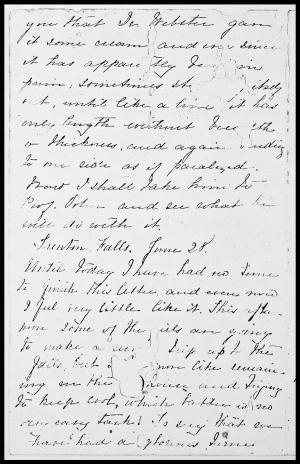 you that Dr. Webster gave
it some cream and ever since
it has
pain, sometimes
out, until like a line it has
only length without breadth
or thickness, and again
to one side as if paralyzed.
Now I shall take him to
Prof. and see what he
will do with it.
Trenton Falls, June 28.
Until today I have had no time
to finish this letter and even now
I feel very little like it. This after
noon some of the girls are going
to make a trip up to the
falls, but more like remain
ing in the house and trying
to keep cool, which latter is no
very easy task. To say that we
have had a glorious time